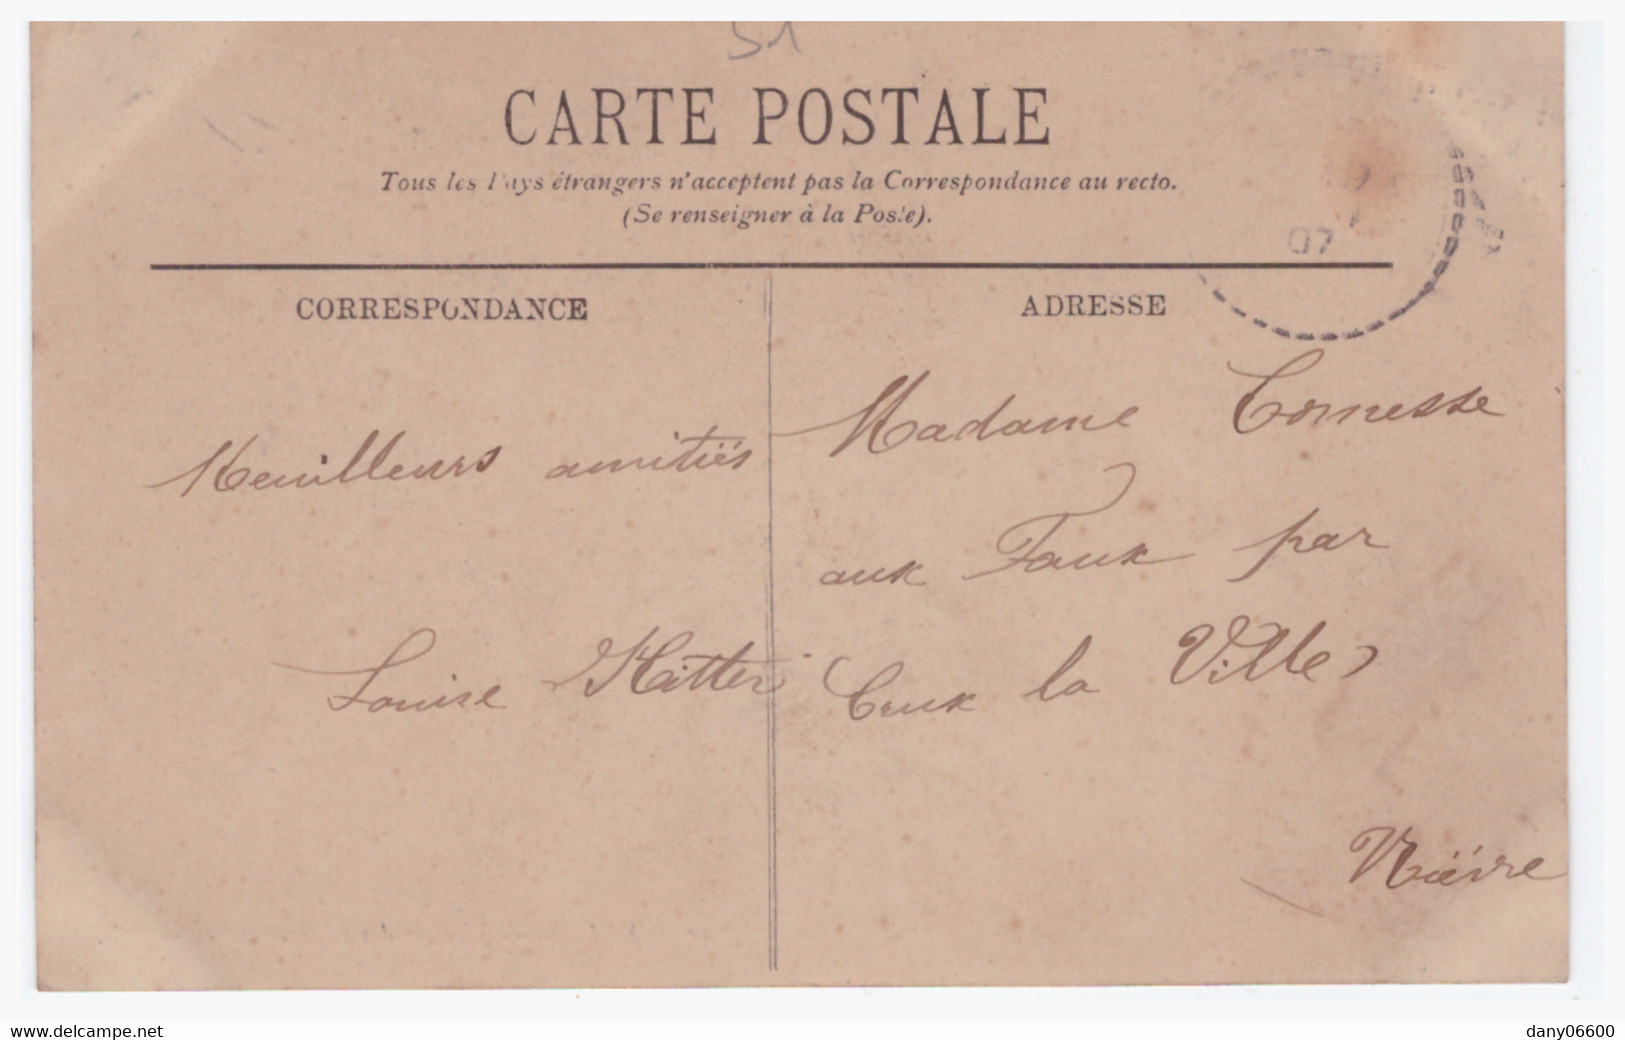 51
CARTE POSTALE
Tous les Pays étrangers n'acceptent pas la Correspondance au recto.
(Se renseigner à la Poste).
07
CORRESPONDANCE
ADRESSE
Meuilleurs amitiés
Louise
Madame Comesse
aux Faux par
Crux la Ville
Nièvre
www.delcampe.net
dany06600